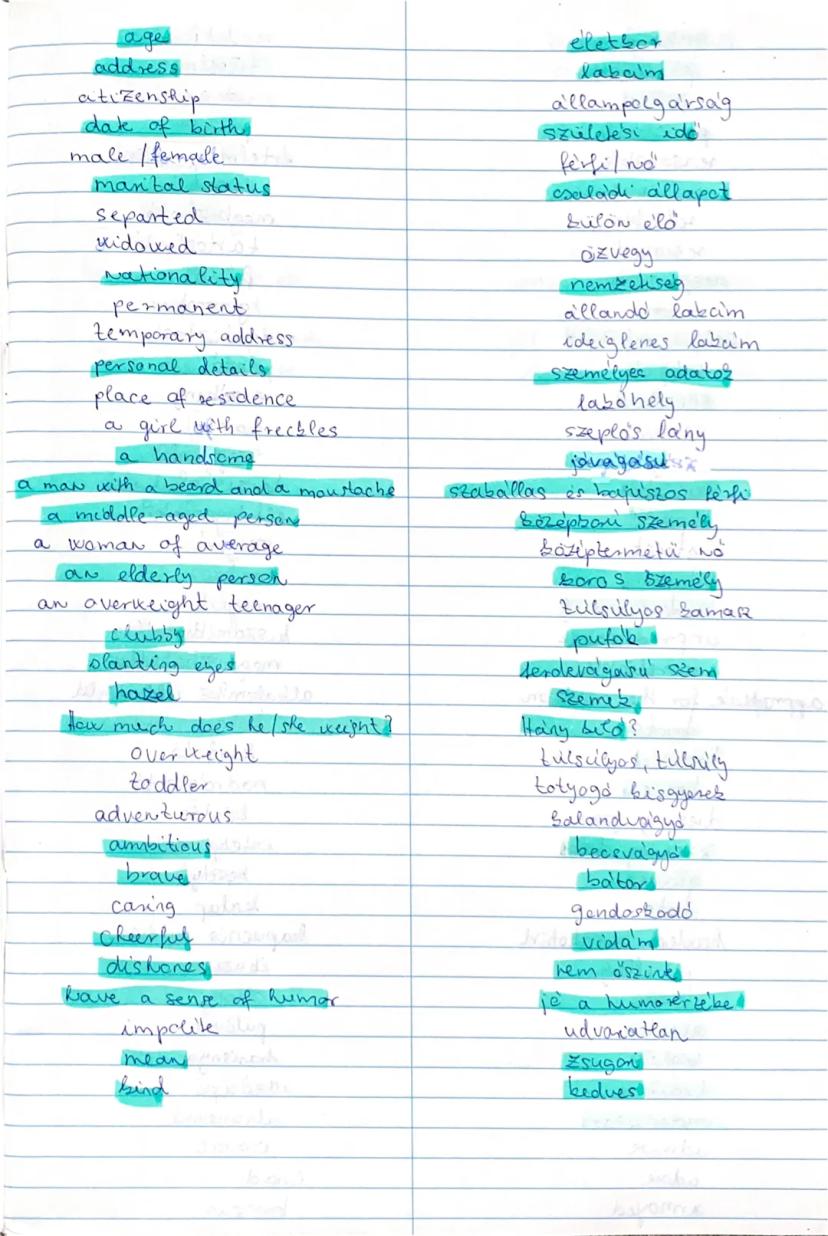 age életkor
address lakcím
citizenship állampolgárság
date of birth születési idő
male / female férfi / nő
marital status családi állapot
separted külön élő
widowed özvegy
nationality nemzetiség
permanent állandó lakcím
temporary address ideiglenes lakcím
personal details személyes adatok
place of residence lakóhely
a girl with freckles szeplős lány
a handsome jóvágású
a man with a beard and a moustache szakállas és bajúszos férfi
a middle-aged person középkorú személy
a woman of average középtermetű nő
an elderly person koros személy
an overweight teenager túlsúlyos kamasz
clubby pufók
slanting eyes ferdevágású szem
hazel szemek
How much does he/she weight? Hány kiló?
overweight túlsúlyos, túlsúly
toddler totyogó kisgyerek
adventurous kalandvágyó
ambitious becsvágyó
brave bátor
caring gondoskodó
cheerful vidám
dishones nem őszinte
have a sense of humor jó a humorérzéke
impolite udvariatlan
mean zsugori
kind kedves